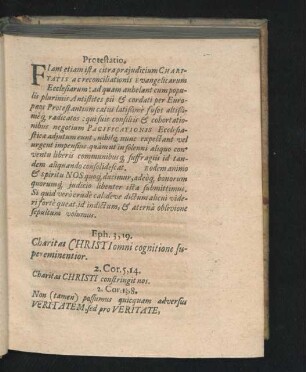 Protestatio.
Fiant etiam ista citra præjudicium CHARI-
TATIS ac reconciliationis Evangelicarum
Ecclesiarum: ad quam anhelant cum populis
plurimis Antistites pii & cordati per Euro-
pam Protestantium latè latissimè fusè altissi-
mèq; radicatos: qui suis consiliis & cohortatio-
nibus negotium PACIFICATIONIS Ecclesia-
sticæ adjutum eunt, nobisq; nunc exspectant vel
urgent impensius: quàm ut in solenni aliquo con-
ventu liberis communibusq; suffragiis id tan-
dem aliquando consolidescat. Eodem animo
& spiritu NOS quoq; ducimur, adeòq; bonorum
quorumq; judicio libenter ista submittimus.
Si quid verò crudè calidève dictum alicui vide-
ri fortè queat, id indictum, & æternâ oblivione
sepultum volumus.
Eph. 3, 19.
Charitas CHRISTI omni cognitione su-
pereminentior.
2. Cor. 5, 14.
Charitas CHRISTI constringit nos.
2. Cor. 13, 8.
Non (tamen) possumus quicquam adversus
VERITATEM, sed pro VERITATE,